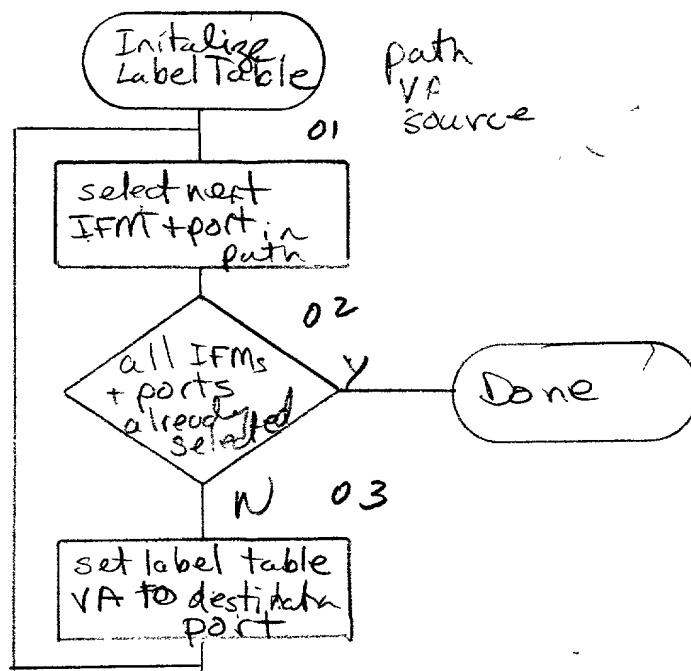 Initalize
Label Table
path
VA
source
01
select next
IFM + port in
path
02
all IFMs
+ ports
already
selected
Y
Done
N
03
set label table
VA to destination
port